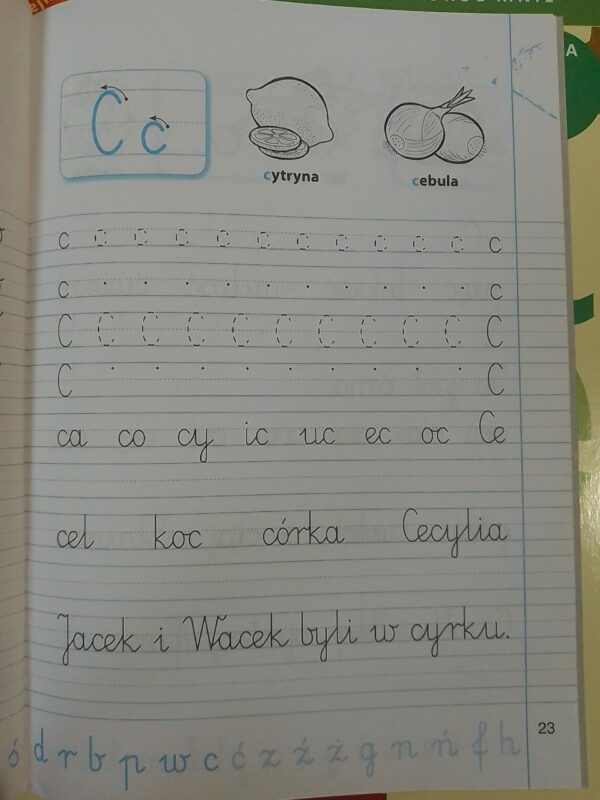 C c
cytryna cebula
c c c c c c c c c c c c
c c
C C C C C C C C C C C
C C
ca co cy ic uc ec oc Ce
cel koc córka Cecylia
Jacek i Wacek byli w cyrku.
23
ó d r b p w c ć z ź ż g n ń f h